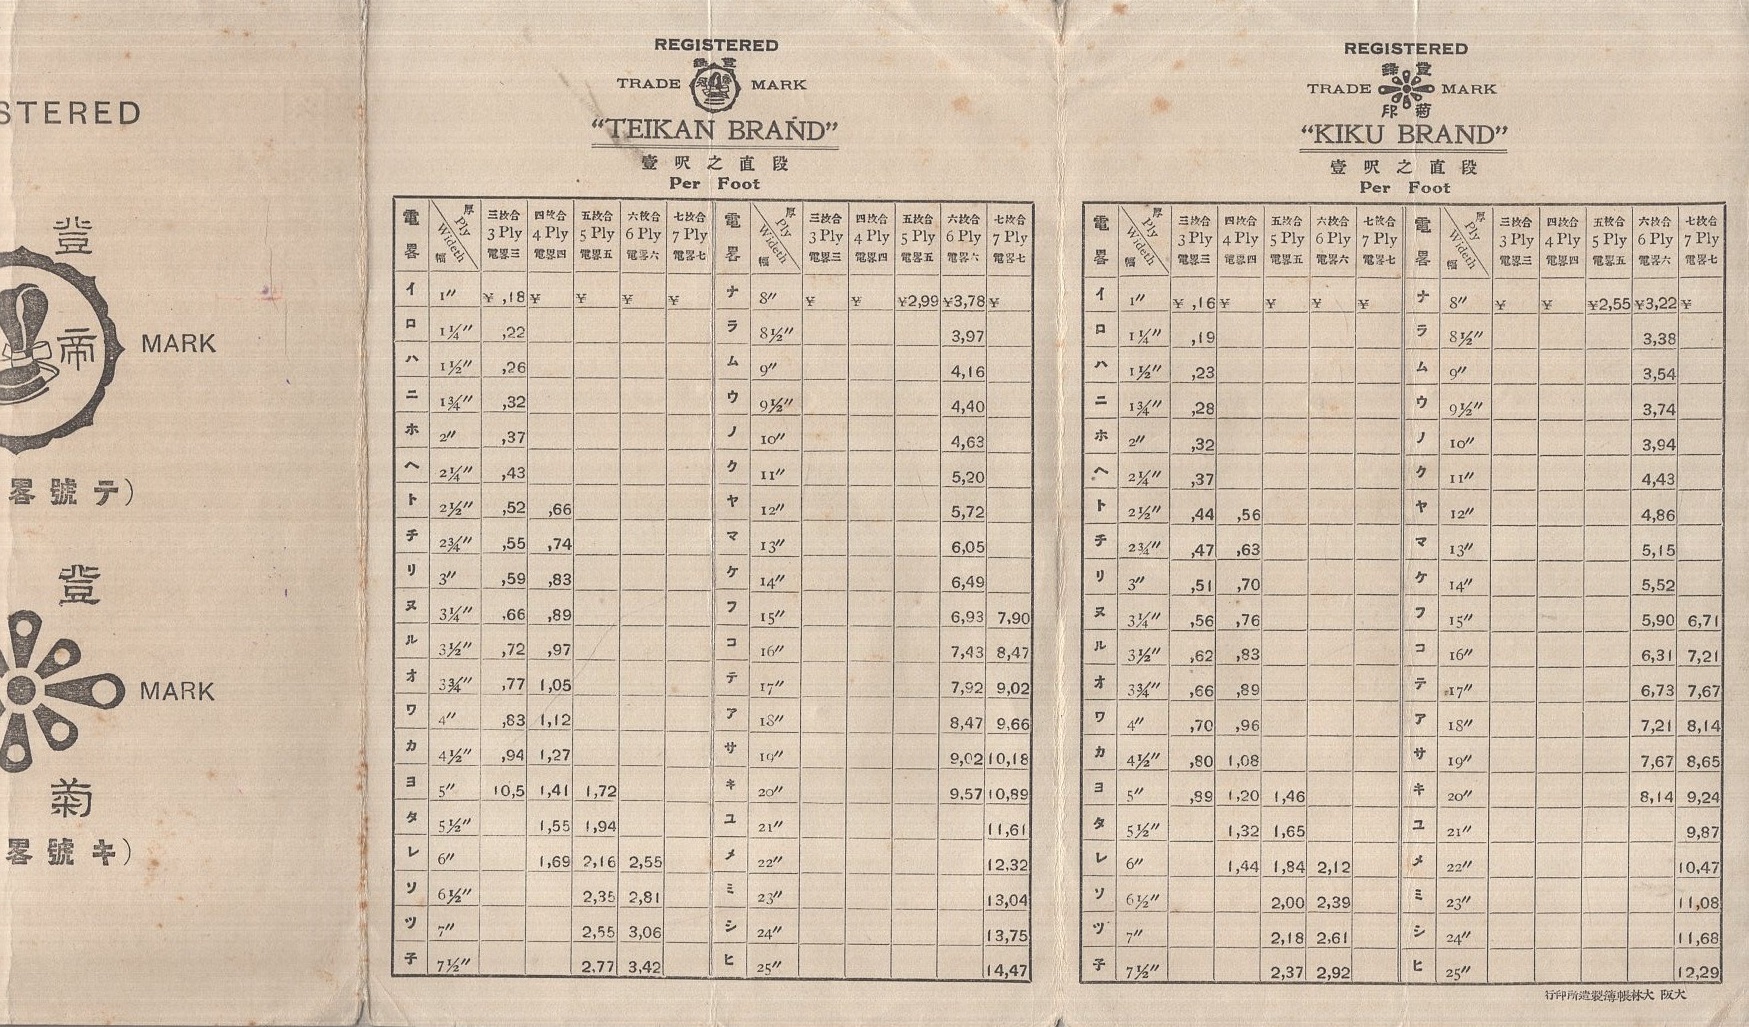 STERED
登
帝
MARK
畧號テ)
登
MARK
菊
畧號キ)
REGISTERED
登錄
TRADE MARK
"TEIKAN BRAND"
壹呎之直段
Per Foot
電畧 厚 Ply Wideth 幅 三枚合 3 Ply 電畧三 四枚合 4 Ply 電畧四 五枚合 5 Ply 電畧五 六枚合 6 Ply 電畧六 七枚合 7 Ply 電畧七 電畧 厚 Ply Wideth 幅 三枚合 3 Ply 電畧三 四枚合 4 Ply 電畧四 五枚合 5 Ply 電畧五 六枚合 6 Ply 電畧六 七枚合 7 Ply 電畧七
イ 1" ¥ ,18 ¥ ¥ ¥ ¥ ナ 8" ¥ ¥ ¥2,99 ¥3,78 ¥
ロ 1¼" ,22 ラ 8½" 3,97
ハ 1½" ,26 ム 9" 4,16
ニ 1¾" ,32 ウ 9½" 4,40
ホ 2" ,37 ノ 10" 4,63
ヘ 2¼" ,43 ク 11" 5,20
ト 2½" ,52 ,66 ヤ 12" 5,72
チ 2¾" ,55 ,74 マ 13" 6,05
リ 3" ,59 ,83 ケ 14" 6,49
ヌ 3¼" ,66 ,89 フ 15" 6,93 7,90
ル 3½" ,72 ,97 コ 16" 7,43 8,47
オ 3¾" ,77 1,05 テ 17" 7,92 9,02
ワ 4" ,83 1,12 ア 18" 8,47 9,66
カ 4½" ,94 1,27 サ 19" 9,02 10,18
ヨ 5" 10,5 1,41 1,72 キ 20" 9,57 10,89
タ 5½" 1,55 1,94 ユ 21" 11,61
レ 6" 1,69 2,16 2,55 メ 22" 12,32
ソ 6½" 2,35 2,81 ミ 23" 13,04
ツ 7" 2,55 3,06 シ 24" 13,75
子 7½" 2,77 3,42 ヒ 25" 14,47
REGISTERED
登錄
TRADE MARK
菊印
"KIKU BRAND"
壹呎之直段
Per Foot
電畧 厚 Ply Wideth 幅 三枚合 3 Ply 電畧三 四枚合 4 Ply 電畧四 五枚合 5 Ply 電畧五 六枚合 6 Ply 電畧六 七枚合 7 Ply 電畧七 電畧 厚 Ply Wideth 幅 三枚合 3 Ply 電畧三 四枚合 4 Ply 電畧四 五枚合 5 Ply 電畧五 六枚合 6 Ply 電畧六 七枚合 7 Ply 電畧七
イ 1" ¥ ,16 ¥ ¥ ¥ ¥ ナ 8" ¥ ¥ ¥2,55 ¥3,22 ¥
ロ 1¼" ,19 ラ 8½" 3,38
ハ 1½" ,23 ム 9" 3,54
ニ 1¾" ,28 ウ 9½" 3,74
ホ 2" ,32 ノ 10" 3,94
ヘ 2¼" ,37 ク 11" 4,43
ト 2½" ,44 ,56 ヤ 12" 4,86
チ 2¾" ,47 ,63 マ 13" 5,15
リ 3" ,51 ,70 ケ 14" 5,52
ヌ 3¼" ,56 ,76 フ 15" 5,90 6,71
ル 3½" ,62 ,83 コ 16" 6,31 7,21
オ 3¾" ,66 ,89 テ 17" 6,73 7,67
ワ 4" ,70 ,96 ア 18" 7,21 8,14
カ 4½" ,80 1,08 サ 19" 7,67 8,65
ヨ 5" ,89 1,20 1,46 キ 20" 8,14 9,24
タ 5½" 1,32 1,65 ユ 21" 9,87
レ 6" 1,44 1,84 2,12 メ 22" 10,47
ソ 6½" 2,00 2,39 ミ 23" 11,08
ツ 7" 2,18 2,61 シ 24" 11,68
子 7½" 2,37 2,92 ヒ 25" 12,29
大阪 大林帳簿製造所印行